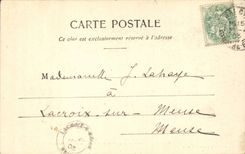 CARTE POSTALE
Ce côté est exclusivement réservé à l'adresse
Mademoiselle J. Lahaye
à
Lacroix-sur-Meuse
Meuse